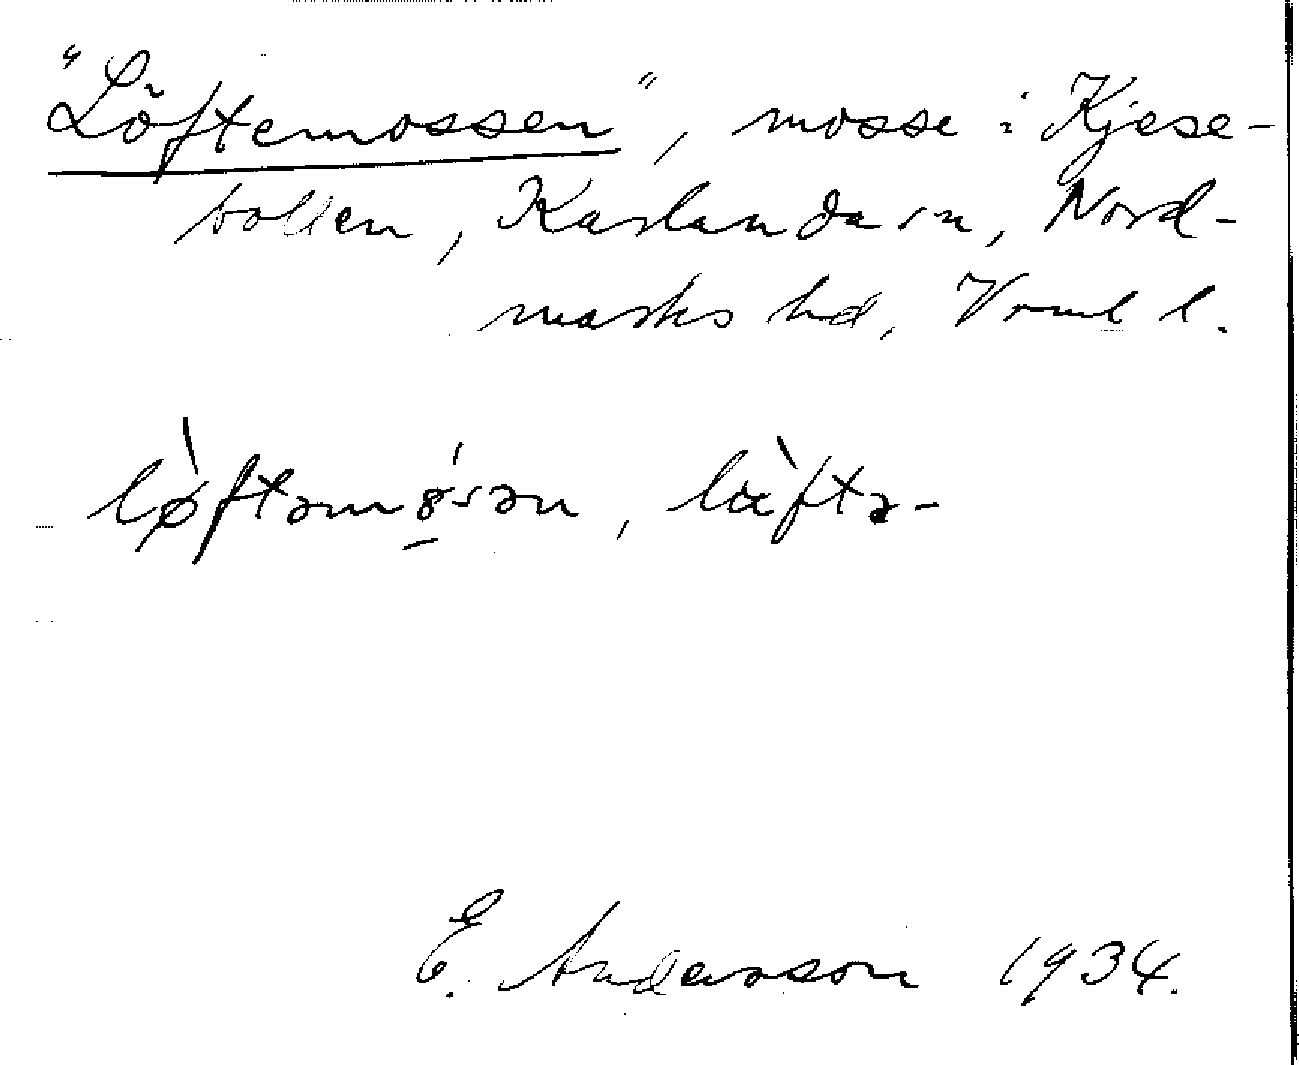 "Löftemossen", mosse i Kjese-
botten, Karlanda sn, Nord-
marks hd, Vrml l.
lø̀ftəmǿsən, lä̀ftə-
E. Andersson 1934.